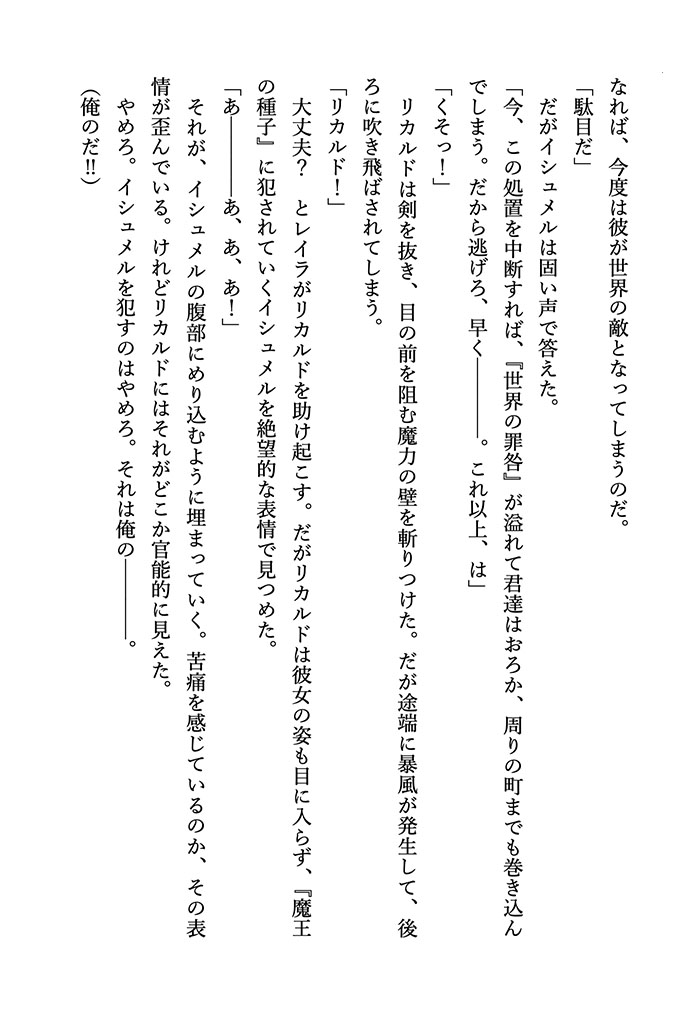 なれば、今度は彼が世界の敵となってしまうのだ。
「駄目だ」
　だがイシュメルは固い声で答えた。
「今、この処置を中断すれば、『世界の罪咎』が溢れて君達はおろか、周りの町までも巻き込ん
でしまう。だから逃げろ、早く――――。これ以上、は」
「くそっ！」
　リカルドは剣を抜き、目の前を阻む魔力の壁を斬りつけた。だが途端に暴風が発生して、後
ろに吹き飛ばされてしまう。
「リカルド！」
　大丈夫？　とレイラがリカルドを助け起こす。だがリカルドは彼女の姿も目に入らず、『魔王
の種子』に犯されていくイシュメルを絶望的な表情で見つめた。
「あ――――あ、あ、あ！」
　それが、イシュメルの腹部にめり込むように埋まっていく。苦痛を感じているのか、その表
情が歪んでいる。けれどリカルドにはそれがどこか官能的に見えた。
　やめろ。イシュメルを犯すのはやめろ。それは俺の――――。
（俺のだ!!）